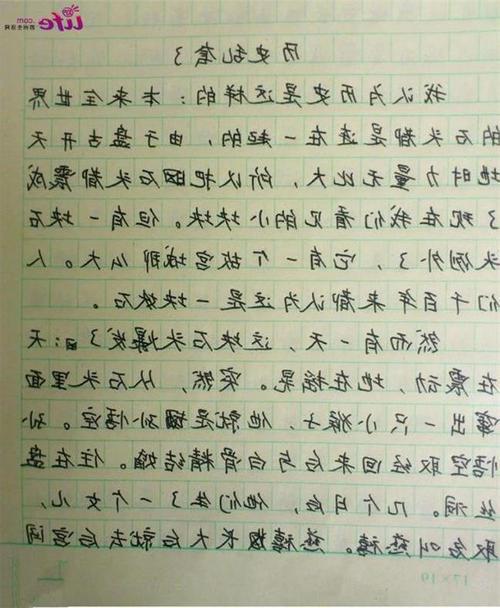 life
.com
历史乱套了
我认为历史是这样的：本来全世界
的石头都是连在一起的，由于盘古开天
地时力量无比大，所以把石头都震成
了现在我们看见的小块块。但有一块石
头例外了，它有一个故宫城那么大。人
们千百年来都认为这是一块妖石。
然而有一天，这块石头爆发了：天
在震动，地在摇晃。突然，从石头里面
窜出一只小猴子，他就是孙悟空。孙
悟空取经回来后与白骨精结婚。住在盘
丝洞。几个月后，他们生了一个女儿，
取名叫慈禧。慈禧长大后就去后宫闯
17×19